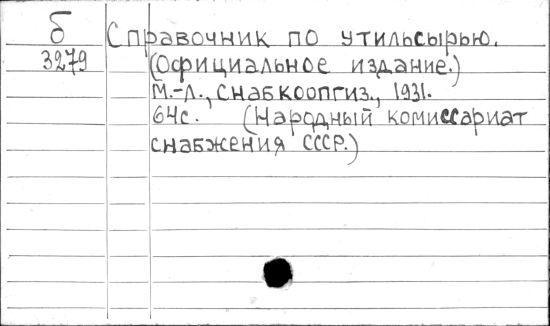 б Справочник по утильсырью.
3279 (Официальное издание.)
М.-Л., Снабкоопгиз., 1931.
64с. (Народный комиссариат
снабжения СССР.)